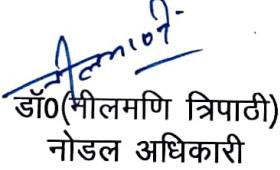 नीलमणि
डॉ0(नीलमणि त्रिपाठी)
नोडल अधिकारी